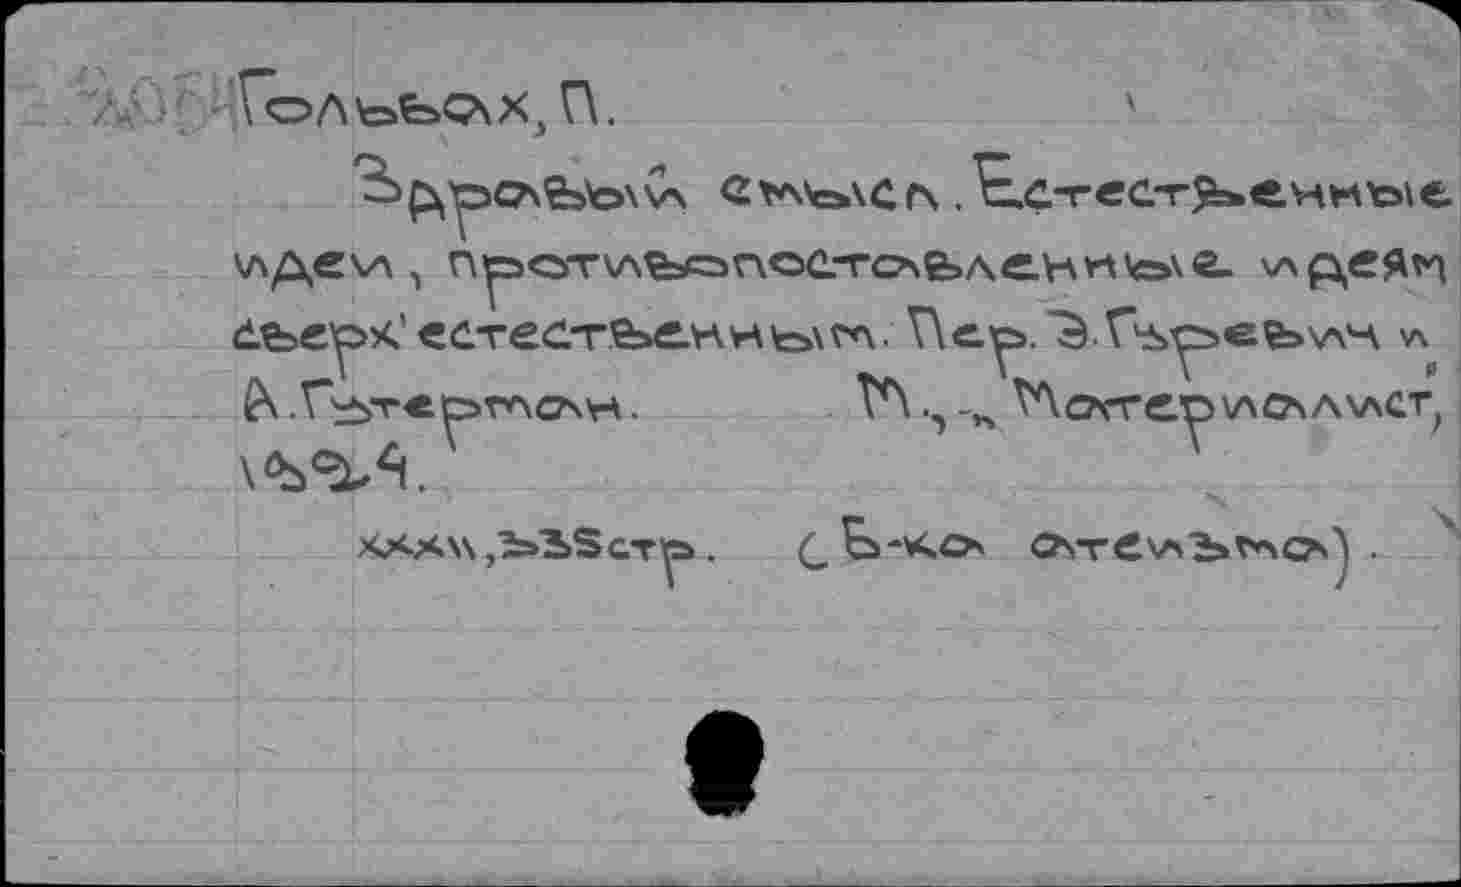 Гольбах, П.
Здравый смысл. Естественные
идеи, противопоставленные идеям
сверх'естественным. Пер. Э.Гуревич и
А.Гутерман. М., -„ Материалист,
1924.
XXXII, 335 стр. (Б-ка атеизма).